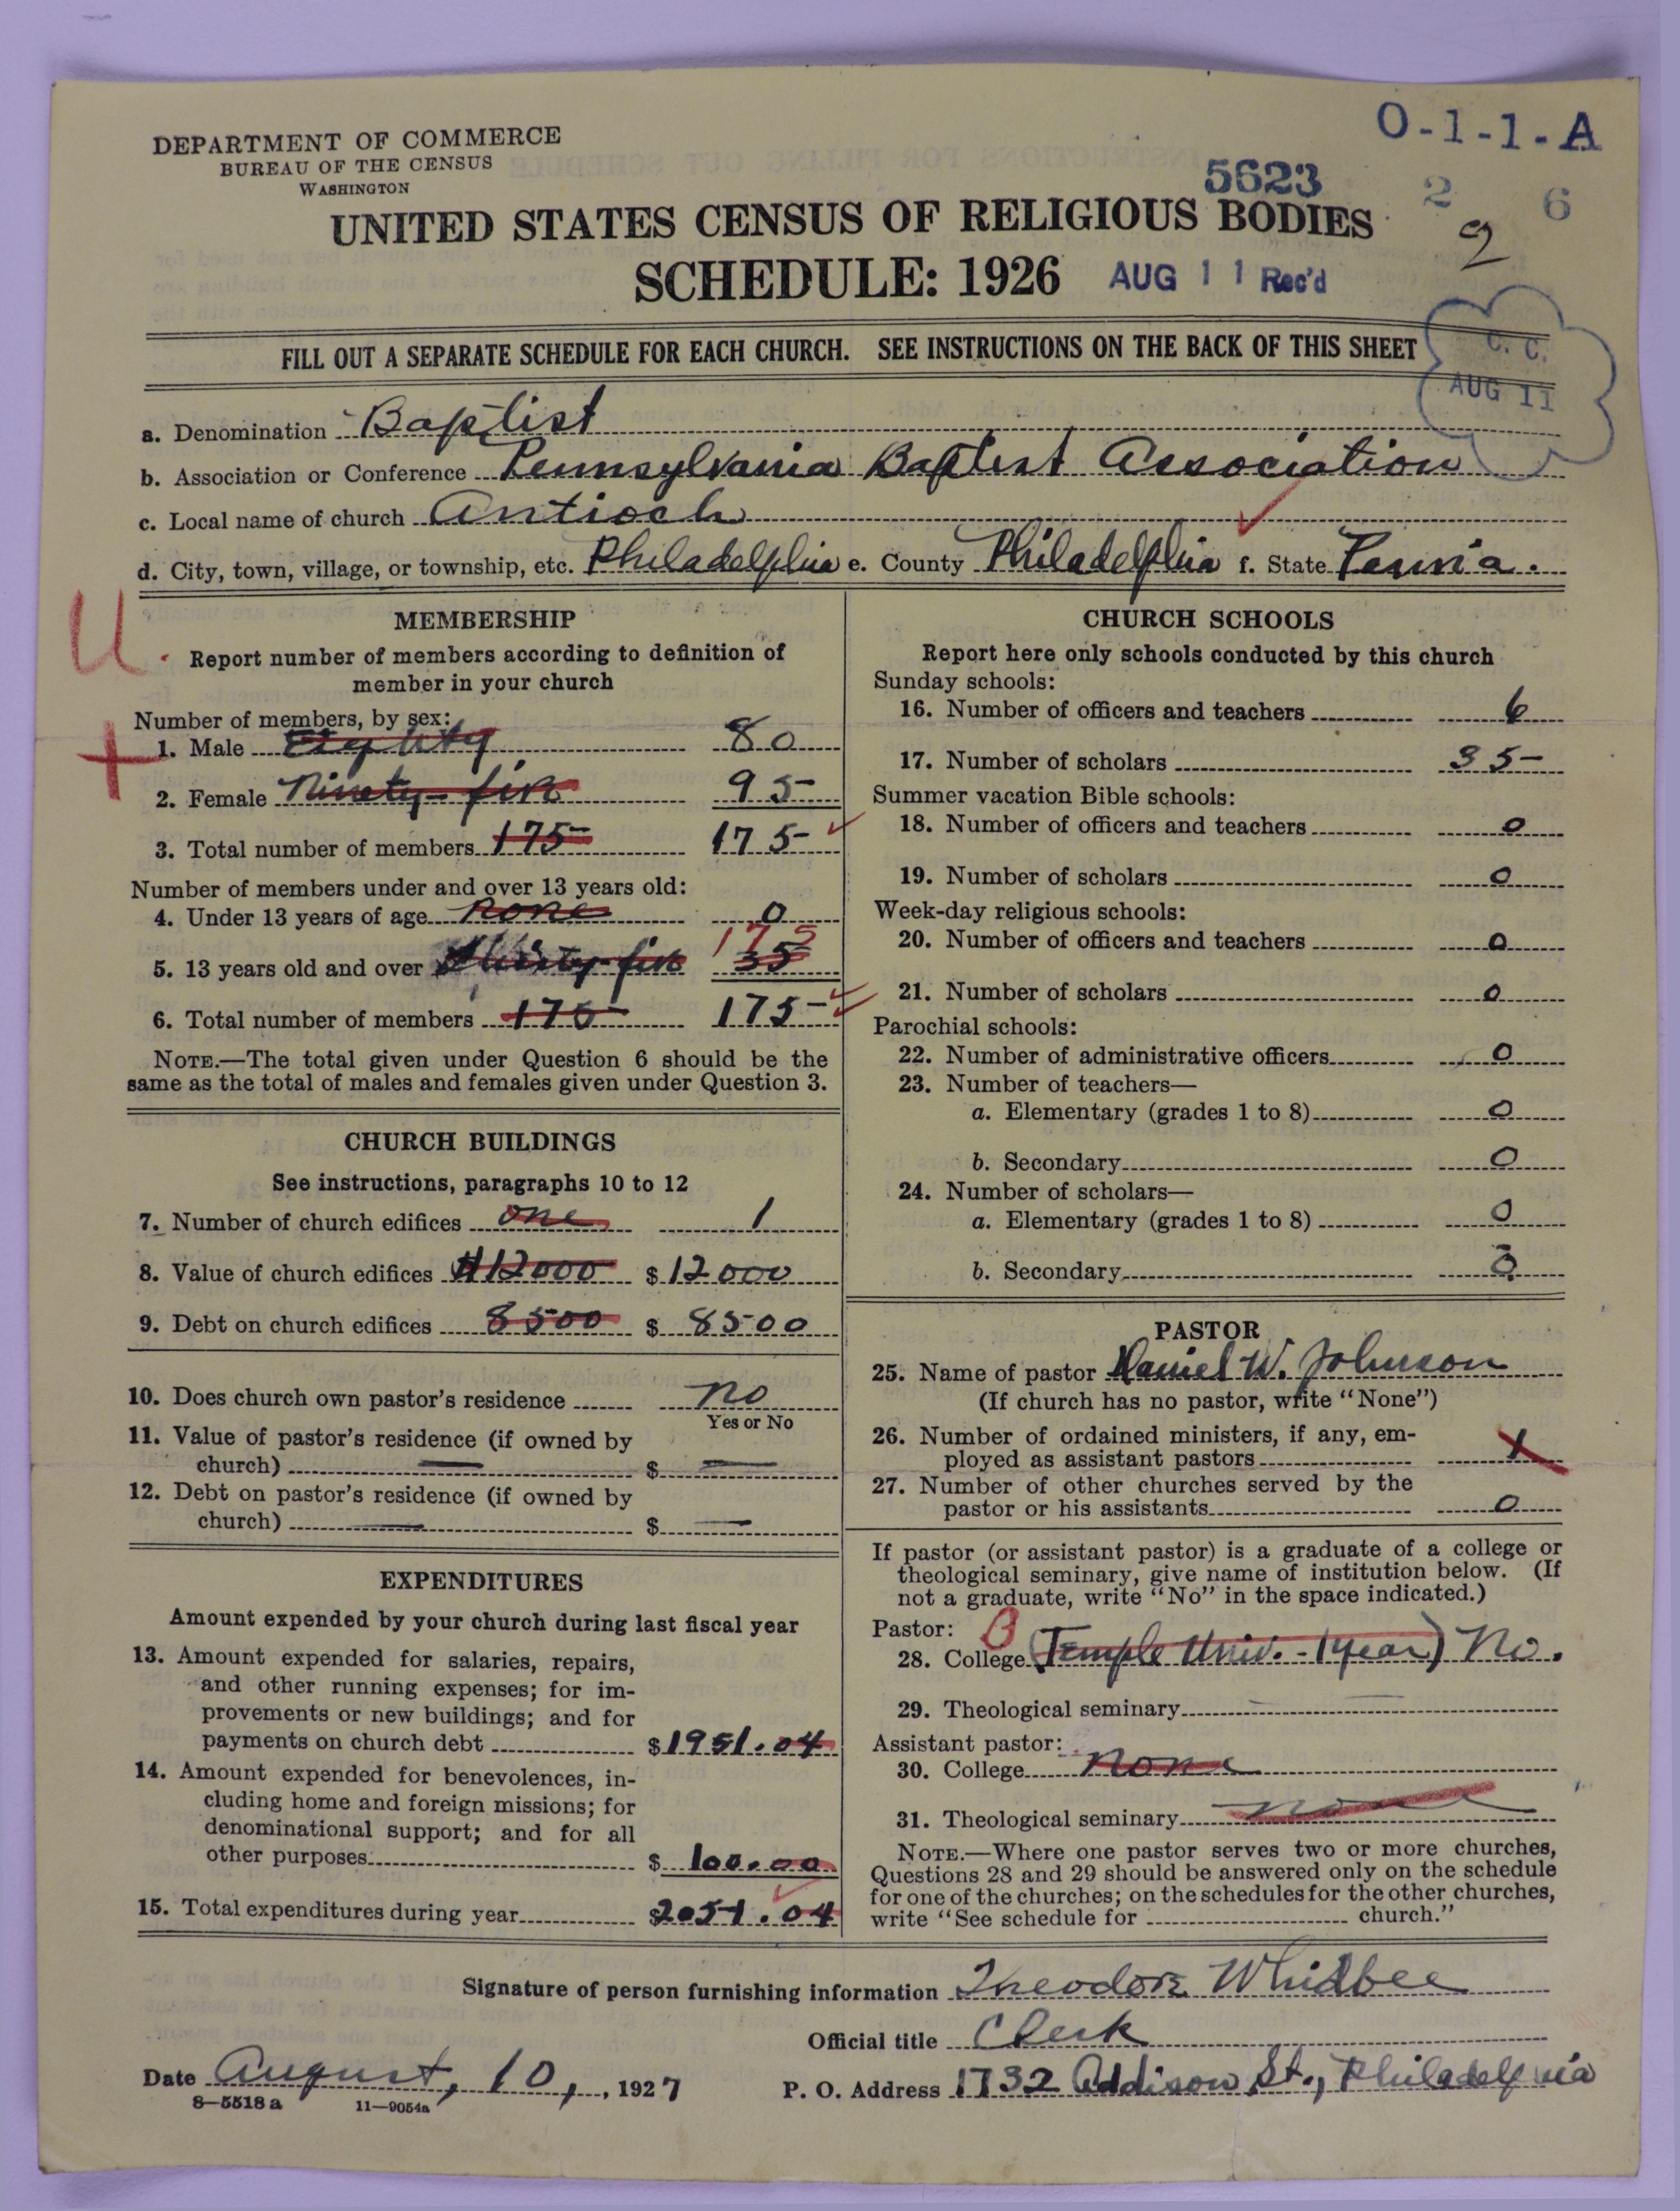 DEPARTMENT OF COMMERCE
BUREAU OF THE CENSUS
WASHINGTON
O-1-1-A
5623
2 6
2
UNITED STATES CENSUS OF RELIGIOUS BODIES
SCHEDULE: 1926 AUG 11 Rec'd
C. C.
AUG 11
FILL OUT A SEPARATE SCHEDULE FOR EACH CHURCH. SEE INSTRUCTIONS ON THE BACK OF THIS SHEET
a. Denomination Baptist
b. Association or Conference Pennsylvania Baptist Association
c. Local name of church Antioch
d. City, town, village, or township, etc. Philadelphia e. County Philadelphia f. State Penn'a.
U
MEMBERSHIP
Report number of members according to definition of
member in your church
Number of members, by sex:
+
1. Male Eighty 80
2. Female Ninety-five 95
3. Total number of members 175 175
Number of members under and over 13 years old:
4. Under 13 years of age none 0
175
5. 13 years old and over thirty-five 35
6. Total number of members 175 175
NOTE.—The total given under Question 6 should be the
same as the total of males and females given under Question 3.
CHURCH BUILDINGS
See instructions, paragraphs 10 to 12
7. Number of church edifices one 1
8. Value of church edifices $12000 $ 12000
9. Debt on church edifices 8500 $ 8500
10. Does church own pastor's residence no
Yes or No
11. Value of pastor's residence (if owned by
church) — $ —
12. Debt on pastor's residence (if owned by
church) — $ —
EXPENDITURES
Amount expended by your church during last fiscal year
13. Amount expended for salaries, repairs,
and other running expenses; for im-
provements or new buildings; and for
payments on church debt $1951.04
14. Amount expended for benevolences, in-
cluding home and foreign missions; for
denominational support; and for all
other purposes $ 100.00
15. Total expenditures during year $2051.04
CHURCH SCHOOLS
Report here only schools conducted by this church
Sunday schools:
16. Number of officers and teachers 6
17. Number of scholars 35
Summer vacation Bible schools:
18. Number of officers and teachers 0
19. Number of scholars 0
Week-day religious schools:
20. Number of officers and teachers 0
21. Number of scholars 0
Parochial schools:
22. Number of administrative officers 0
23. Number of teachers—
a. Elementary (grades 1 to 8) 0
b. Secondary 0
24. Number of scholars—
a. Elementary (grades 1 to 8) 0
b. Secondary 0
PASTOR
25. Name of pastor Daniel W. Johnson
(If church has no pastor, write "None")
26. Number of ordained ministers, if any, em-
ployed as assistant pastors 1
27. Number of other churches served by the
pastor or his assistants 0
If pastor (or assistant pastor) is a graduate of a college or
theological seminary, give name of institution below. (If
not a graduate, write "No" in the space indicated.)
Pastor:
28. College (Temple Univ. - 1 year) No.
29. Theological seminary
Assistant pastor:
30. College none
31. Theological seminary none
NOTE.—Where one pastor serves two or more churches,
Questions 28 and 29 should be answered only on the schedule
for one of the churches; on the schedules for the other churches,
write "See schedule for church."
Signature of person furnishing information Theodore Whidbee
Official title Clerk
Date August, 10, , 1927 P. O. Address 1732 Addison St., Philadelphia
8—5518 a 11—9054a